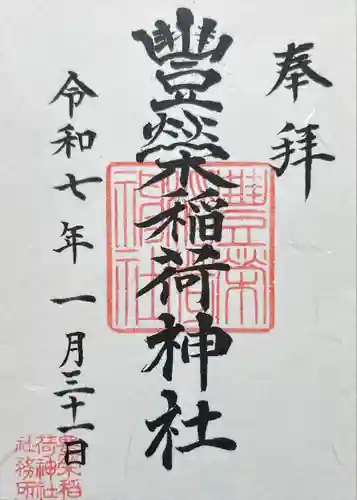 奉拜
豐榮稲荷神社
令和七年一月三十一日
豊栄稲荷神社
豊栄稲
荷神社
社務所